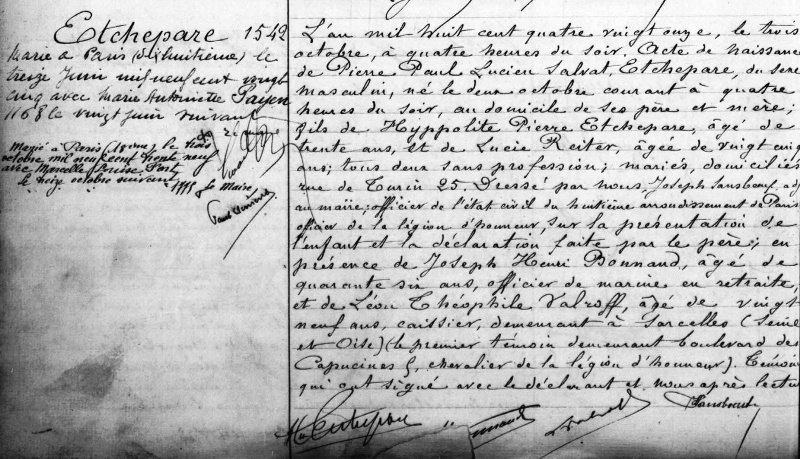 Etchepare 1542
Marié à Paris (dixhuitième) le
treize Juin mil neuf cent vingt
cinq avec Marie Antoinette Payen
1168 le vingt Juin suivant
Marié à Paris (18eme) le trois
octobre mil neuf cent trente neuf
avec Marcelle Louise Port
le seize octobre suivant 1995
Le Maire,
L'an mil huit cent quatre vingt onze, le trois
octobre, à quatre heures du soir, Acte de naissance
de Pierre Paul Lucien Salvat, Etchepare, du sexe
masculin, né le deux octobre courant à quatre
heures du soir, au domicile de ses père et mère;
fils de Hyppolite Pierre Etchepare, âgé de
trente ans, et de Lucie Reiter, âgée de vingt cinq
ans; tous deux sans profession; mariés, domiciliés
rue de Turin 25. Dressé par nous, Joseph Sansboeuf, adj
au maire; officier de l'état civil du huitième arrondissement de Paris
officier de la légion d'honneur, sur la présentation de
l'enfant et la déclaration faite par le père; en
présence de Joseph Henri Bonnand, âgé de
quarante six ans, officier de marine en retraite,
et de Léon Théophile Valroff, âgé de vingt
neuf ans, caissier, demeurant à Sarcelles (Seine
et Oise) (le premier témoin demeurant boulevard des
Capucines 5, chevalier de la légion d'honneur). Témoins
qui ont signé avec le déclarant et nous après lecture
Sansboeuf